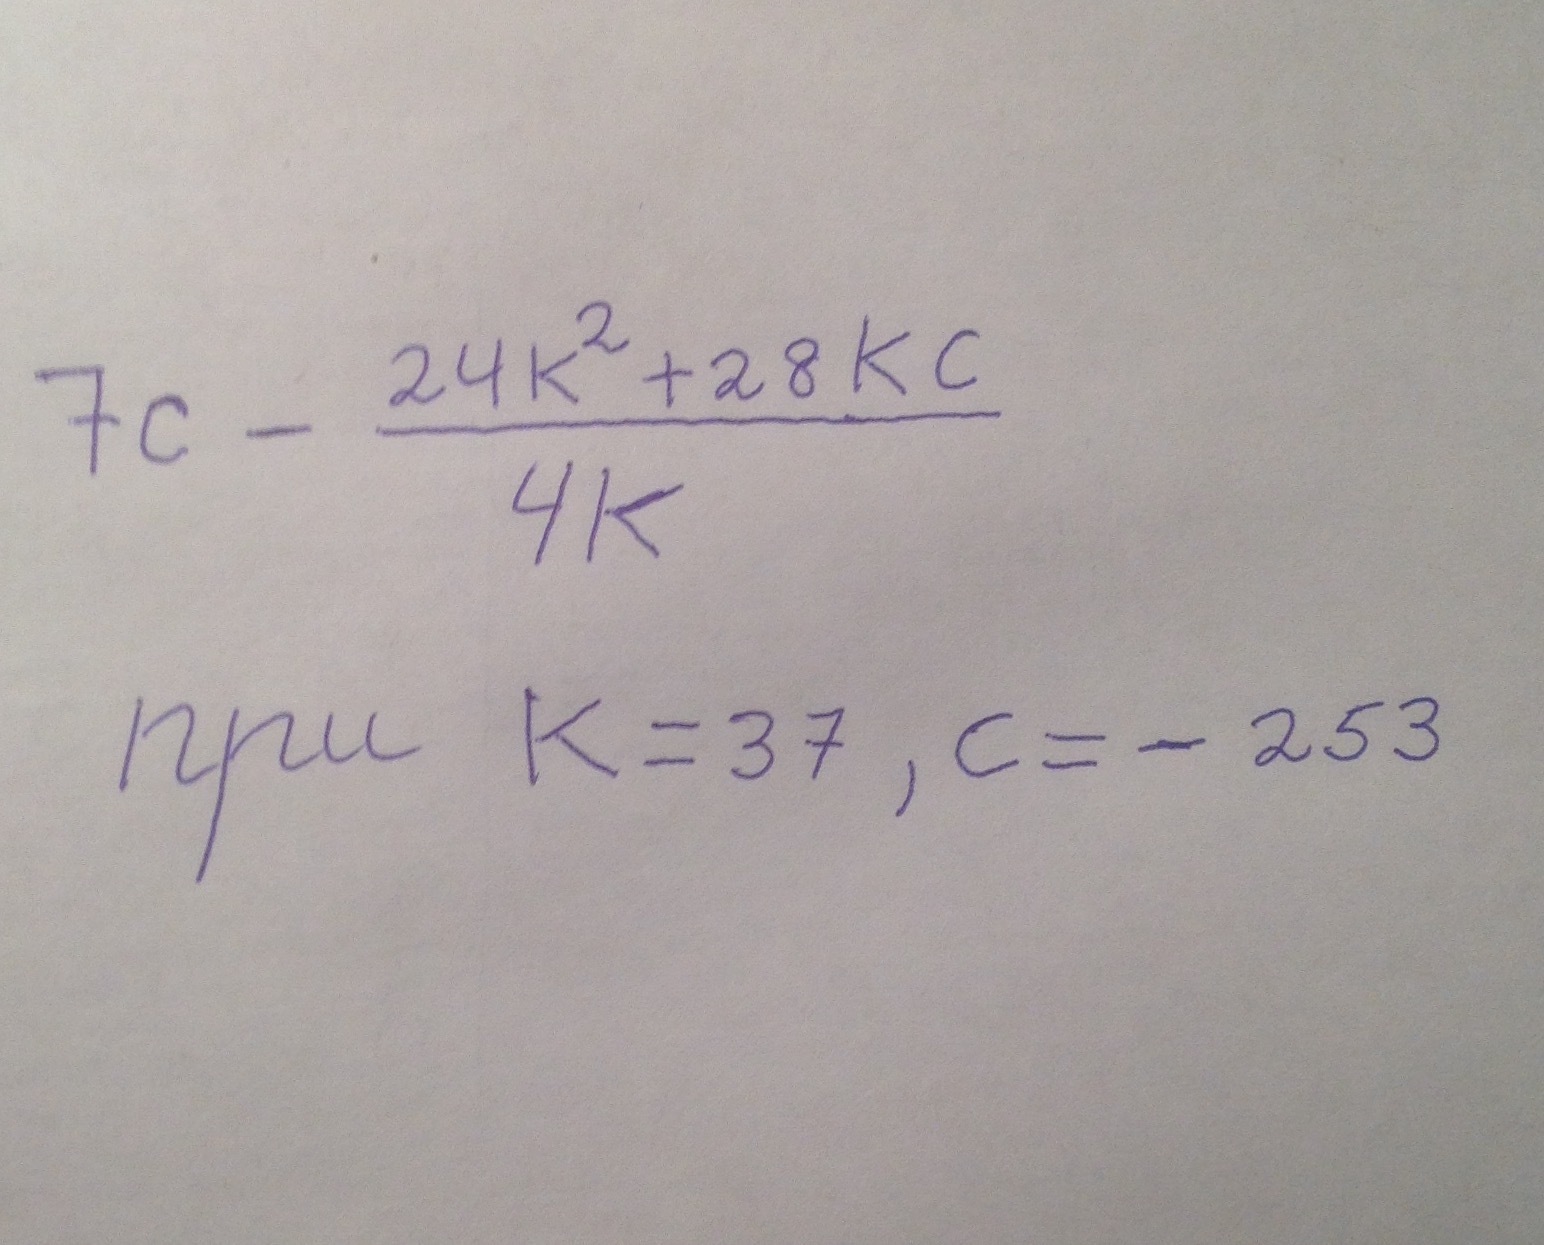 7c - \frac{24k^2+28kc}{4k}
при k=37, c=-253